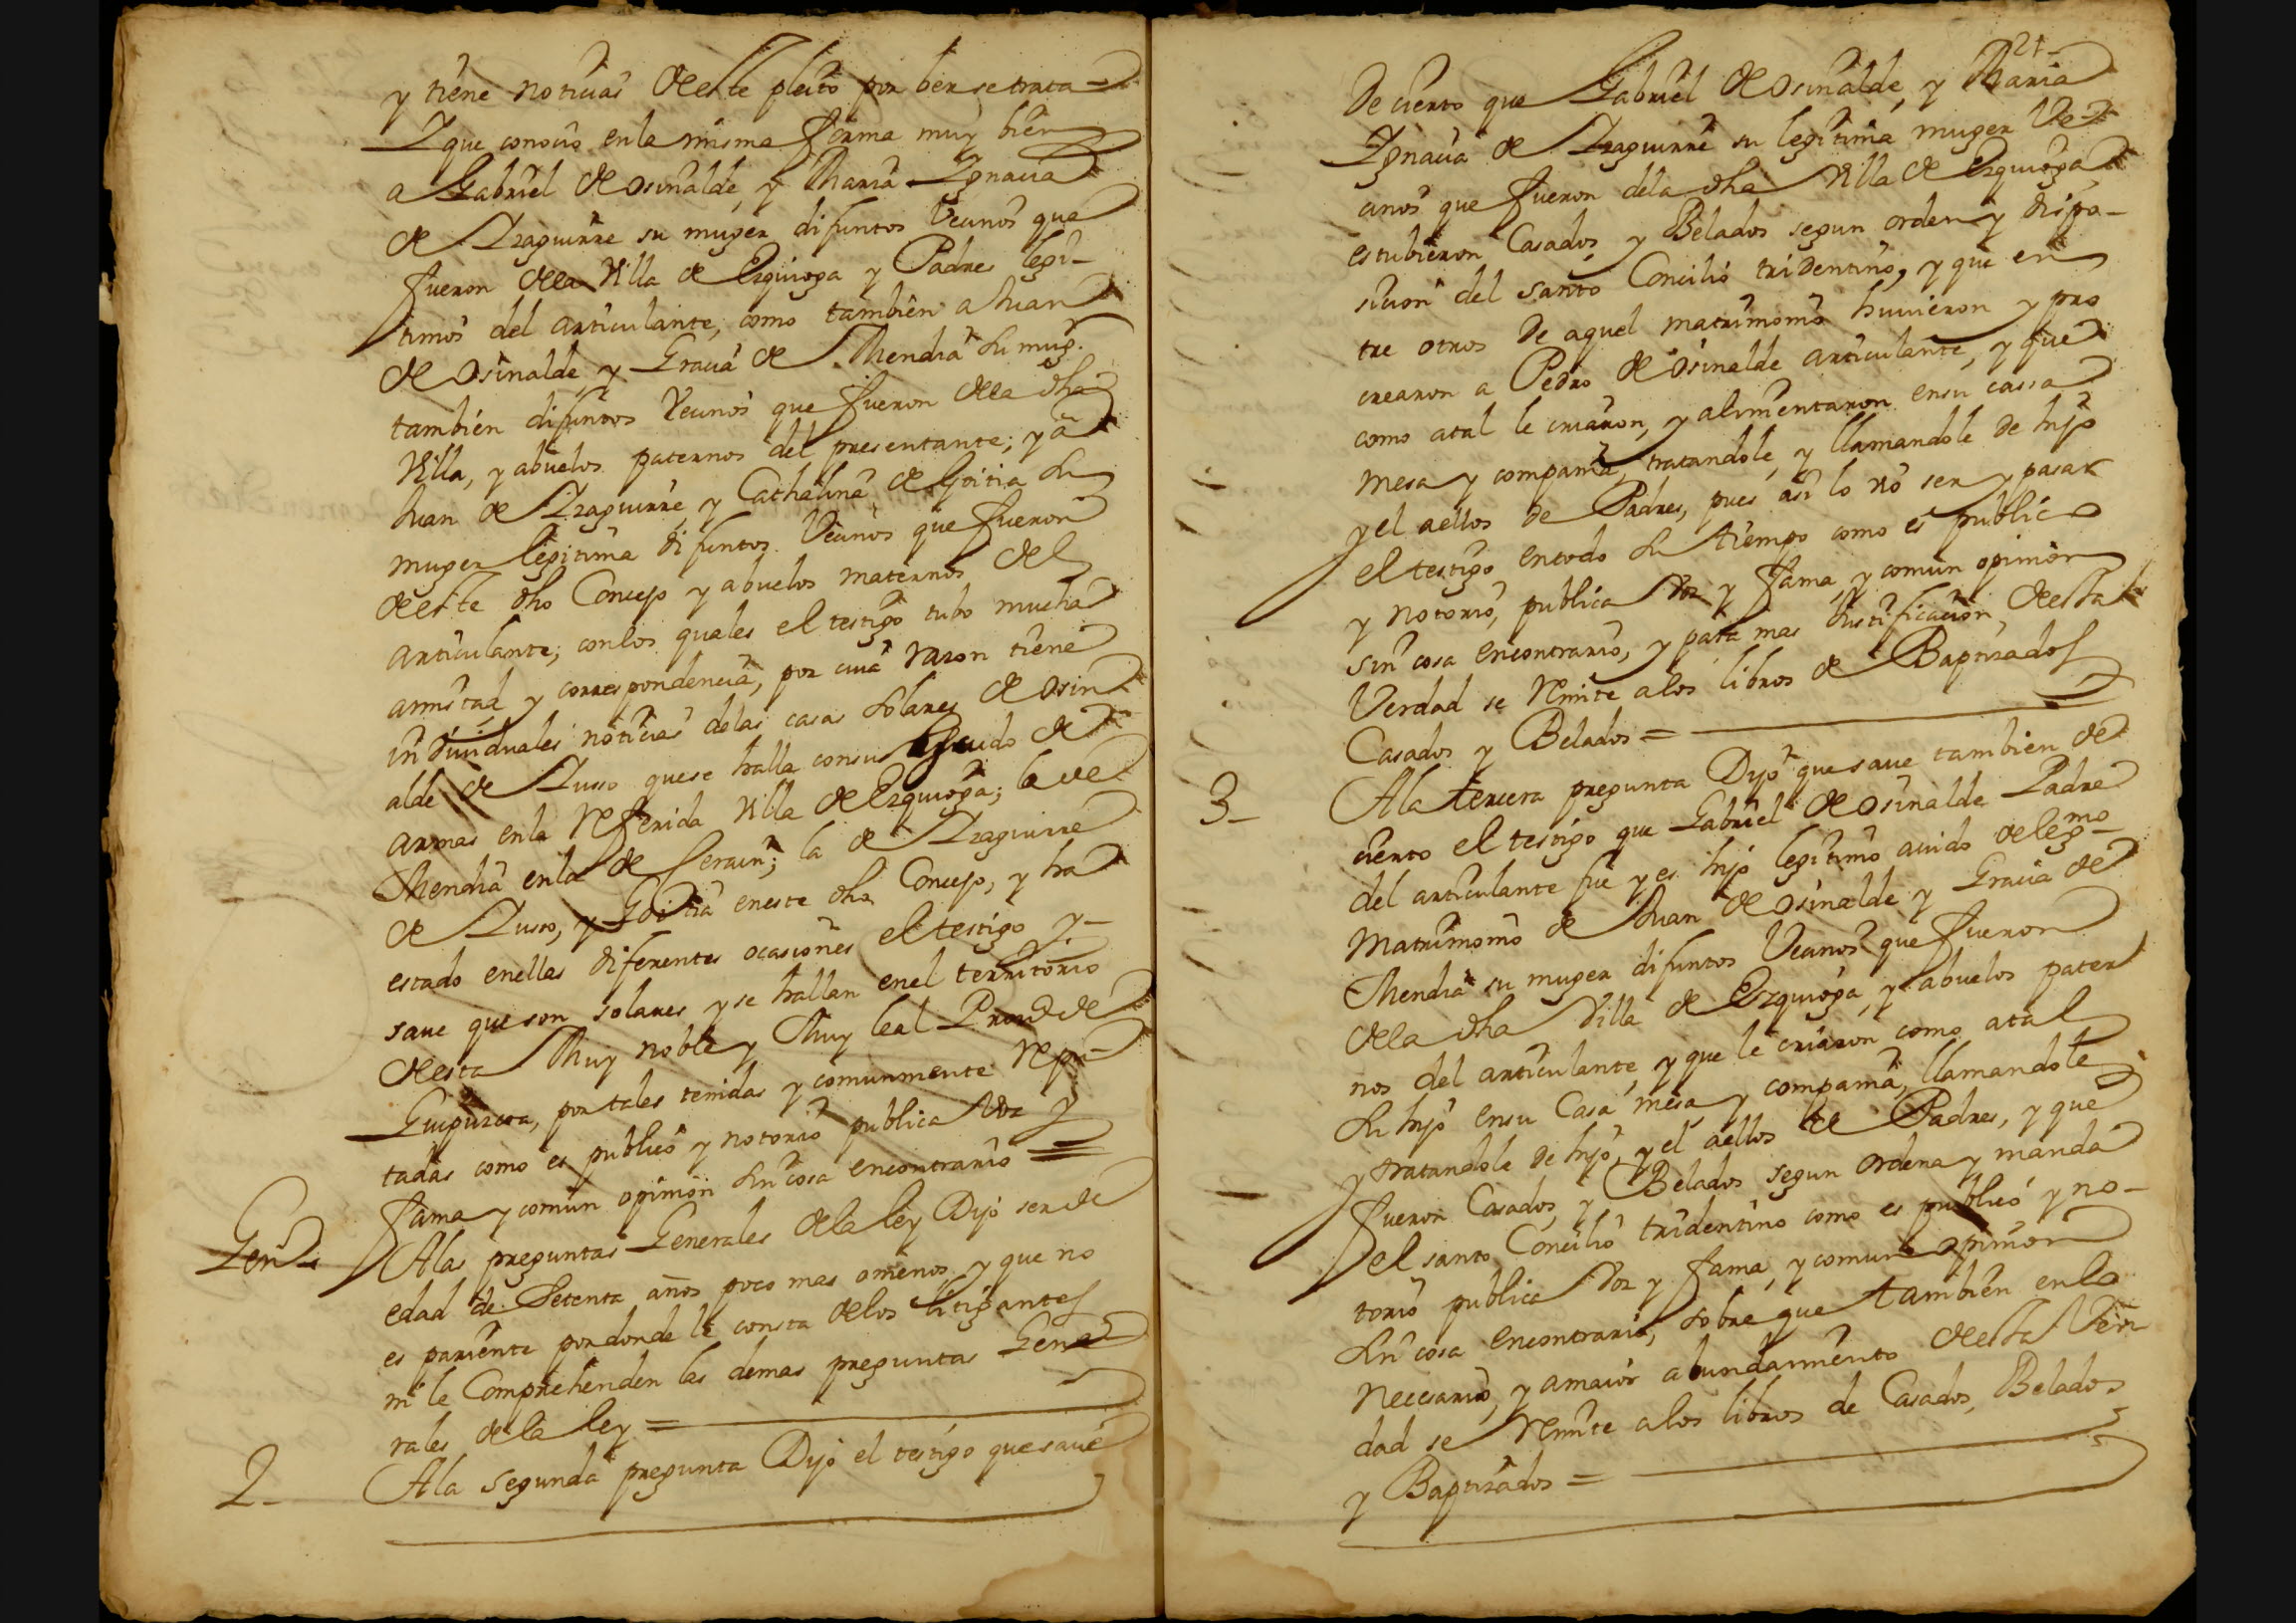 y tiene noticias de este pleito por ber se trata =
Y que conocio en la misma forma muy bien
a Gabriel de Osinalde, y Maria Ygnacia
de Yzaguirre su muger difuntos Vecinos que
fueron de la Villa de Ezquioga y Padres legi-
timos del articulante, como tambien a Juan
de Osinalde, y Gracia de Mendia su mug.r
tambien difuntos Vecinos que fueron de la dha
Villa, y abuelos paternos del presentante; y a
Juan de Yzaguirre, y Cathalina de Goitia su
muger legitima difuntos Vecinos que fueron
de este dho Concejo y abuelos maternos del
articulante; con los quales el testigo tubo mucha
amistad y correspondencia, por cuia razon tiene
individuales noticias de las casas solares de Osin
alde de Yusso que se halla con su escudo de
armas en la referida Villa de Ezquioga; la de
Mendia en la de Serain; la de Yzaguirre
de Yusso, y Goitia en este dho Concejo, y ha
estado en ellas diferentes ocasiones el testigo y-
save que son solares y se hallan en el territorio
de esta Muy noble y Muy leal Prov.a de
Guipuzcoa, por tales tenidas y comunmente repu-
tadas como es publico y notorio publica voz y
fama y comun opinion sin cosa en contrario =
Gen.s
A las preguntas Generales de la ley Dijo ser de
edad de Setenta años poco mas o menos, y que no
es pariente por donde le consta de los litigantes
ni le Comprehenden las demas preguntas Gene
rales de la ley =
2-
A la segunda pregunta Dijo el testigo que save
21
De cierto que Gabriel de Osinalde, y Maria
Ygnacia de Yzaguirre su legitima muger Ve-
cinos que fueron de la dha Villa de Ezquioga
estubieron Casados, y Belados segun orden y dispo-
sicion del santo Concilio tridentino, y que en
tre otros de aquel matrimonio huvieron y pro
crearon a Pedro de Osinalde articulante, y que
como a tal le criaron, y alimentaron en su cassa
mesa y compania, tratandole, y llamandole de hijo
y el a ellos de Padres, pues asi lo vio ser y pasar
el testigo en todo su tiempo como es publico
y notorio, publica voz y fama, y comun opinion
sin cosa en contrario, y para mas Justificacion de esta
Verdad se remite a los libros de Baptizados
Casados y Belados =
3-
A la tercera pregunta Dijo que save tambien de
cierto el testigo que Gabriel de Osinalde Padre
del articulante fue y es hijo legitimo avido de leg.mo
Matrimonio de Juan de Osinalde y Gracia de
Mendia su muger difuntos Vecinos que fueron
de la dha Villa de Ezquioga, y abuelos pater
nos del articulante, y que le criaron como a tal
su hijo en su Casa mesa y compania, llamandole
y tratandole de hijo, y el a ellos de Padres, y que
fueron Casados, y Belados segun ordena y manda
el santo Concilio tridentino como es publico y no-
torio publica voz y fama, y comun opinion
sin cosa en contrario, sobre que tambien en lo
Necesario, y a maior abundamiento de esta Ver
dad se remite a los libros de Casados, Belados
y Baptizados =